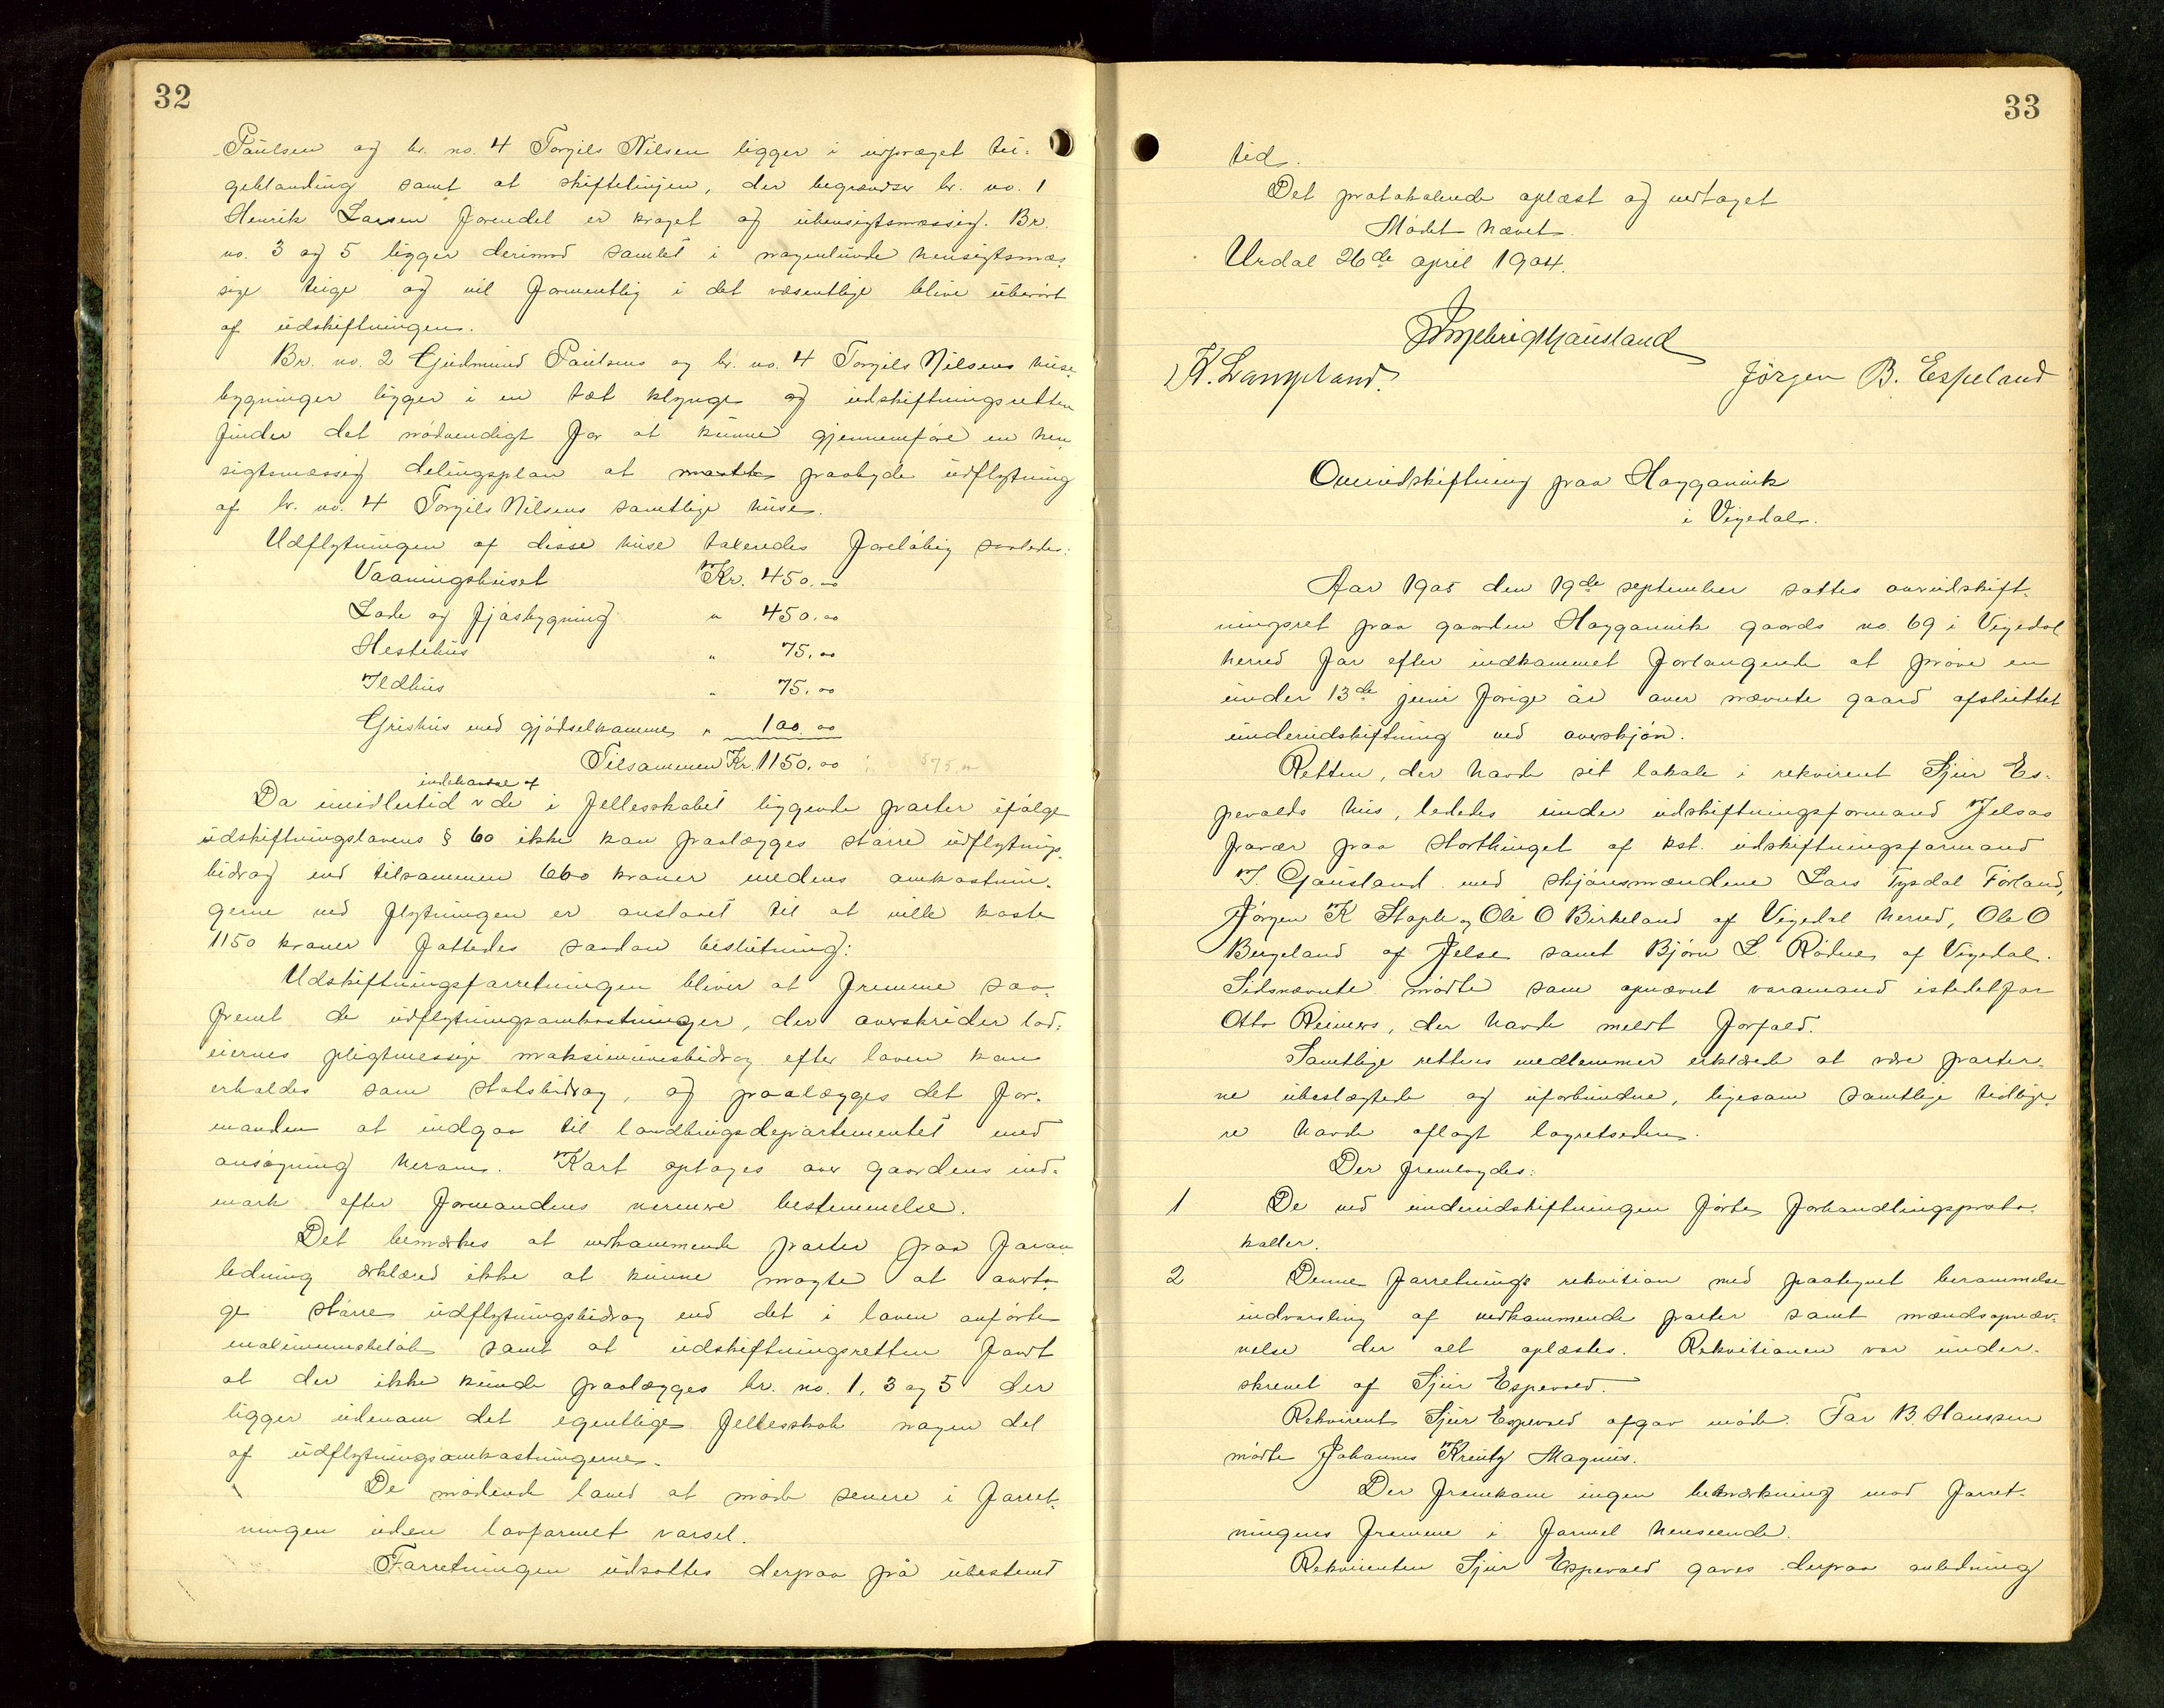 32
Paulsen og br. no. 4 Torgils Nilsen ligger i udpræget tei-
geblanding samt at skiftelinjen, der begrændser br. no. 1
Henrik Larsen forendel er kroget og uhensigtsmæssig. Br.
no. 3 og 5 ligger derimod samlet i nogenlunde hensigtsmæs-
sige teige og vil formentlig i det væsentlige blive uberört
af udskiftningen.
Br. no. 2 Gudmund Paulsens og br. no. 4 Torgils Nilsens huse
bygninger ligger i en tæt klynge og udskiftningsretten
finder det nödvendigt for at kunne gjennemföre en hen-
sigtsmæssig delingsplan at maatte paabyde udflytning
af br. no. 4 Torgils Nilsens samtlige huse.
Udflytningen af disse huse taxeredes foreløbig saaledes:
Vaaningshuset Kr. 450.00
Lade og fjösbygning " 450.00
Hestehus " 75.00
Ildhus " 75.00
Grishus med gjödselkamme " 100.00
Tilsammen Kr. 1150.00
indehavere af
Da imidlertid v de i fellesskabet liggende parter ifölge
udskiftningslovens § 60 ikke kan paalægges större udflytnings-
bidrag end tilsammen 660 kroner medens omkostnin-
gerne ved flytningen er anslaaet til at ville koste
1150 kroner fattedes saadan beslutning:
Udskiftningsforretningen bliver at fremme saa-
fremt de udflytningsomkostninger, der overskrider lod-
eiernes pligtmessige maksimumsbidrag efter loven kan
erholdes som statsbidrag, og paalægges det for-
manden at indgaa til landbrugsdepartementet med
ansögning herom. Kart optages over gaardens ind-
mark efter formandens nermere bestemmelse.
Det bemærkes at vedkommende parter paa foran-
ledning erklæred ikke at kunne magte at overta-
ge större udflytningsbidrag end det i loven anförte
maximumsbelöb samt at udskiftningsretten fandt
at der ikke kunde paalægges br. no. 1, 3 og 5 der
ligger udenom det egentlige fellesskab nogen del
af udflytningsomkostningerne.
De mödende loved at möde senere i forret-
ningen uden lovformet varsel.
Forretningen udsattes derpaa på ubestemt
33
tid.
Det protokolerede oplæst og vedtaget
Mödet hævet.
Urdal 26de april 1904.
Ingebrigt Gausland
K. Lampeland.
Jörgen B. Espeland
Overudskiftning paa Hogganvik
i Vigedal.
Aar 1905 den 19de september sattes overudskift-
ningsret paa gaarden Hogganvik gaards no. 69 i Vigedal
herred for efter indkommet forlangende at pröve en
under 13de juni forige år over nævnte gaard afsluttet
underudskiftning ved overskjön.
Retten, der havde sit lokale i rekvirent Sjur Es-
pevolds hus, lededes under udskiftningsformand Jelsas
fravær paa Storthinget af kst. udskiftningsformand
I. Gausland med skjönsmændene Lars Tysdal Förland,
Jörgen K Stople, Ole O Birkeland af Vigedal herred, Ole O
Bergeland af Jelse samt Bjørn L. Rödne, af Vigedal.
Sidsnævnte mödte som opnævnt varamand istedetfor
Otto Reimers, der havde meldt forfald.
Samtlige rettens medlemmer erklærede at være parter-
ne ubeslægtede og uforbundne, ligesom samtlige tidlige-
re havde aflagt lagretseden.
Der fremlagdes:
1 De ved underudskiftningen förte forhandlingsproto-
koller.
2 Denne forretnings rekvisition med paategnet berammelse
indvarsling af vedkommende parter samt mændsopnæv-
nelse der alt oplæstes. Rekvisitionen var under-
skrevet af Sjur Espevold.
Rekvirent Sjur Espevold afgav möde. For B. Hanssen
mödte Johannes Kreutz Magnus.
Der fremkom ingen bemærkning mod forret-
ningens fremme i formel henseende.
Rekvirenten Sjur Espevold gaves derpaa anledning